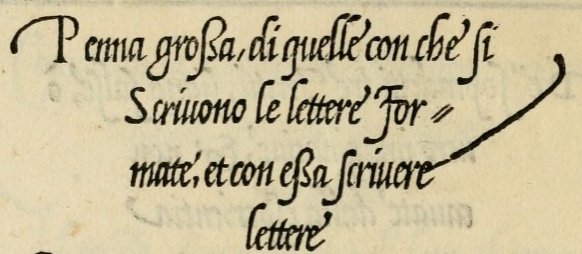 Penna große, di quelle con che si
Scriuono le lettere For=
mate, et con eßa scriuere
lettere